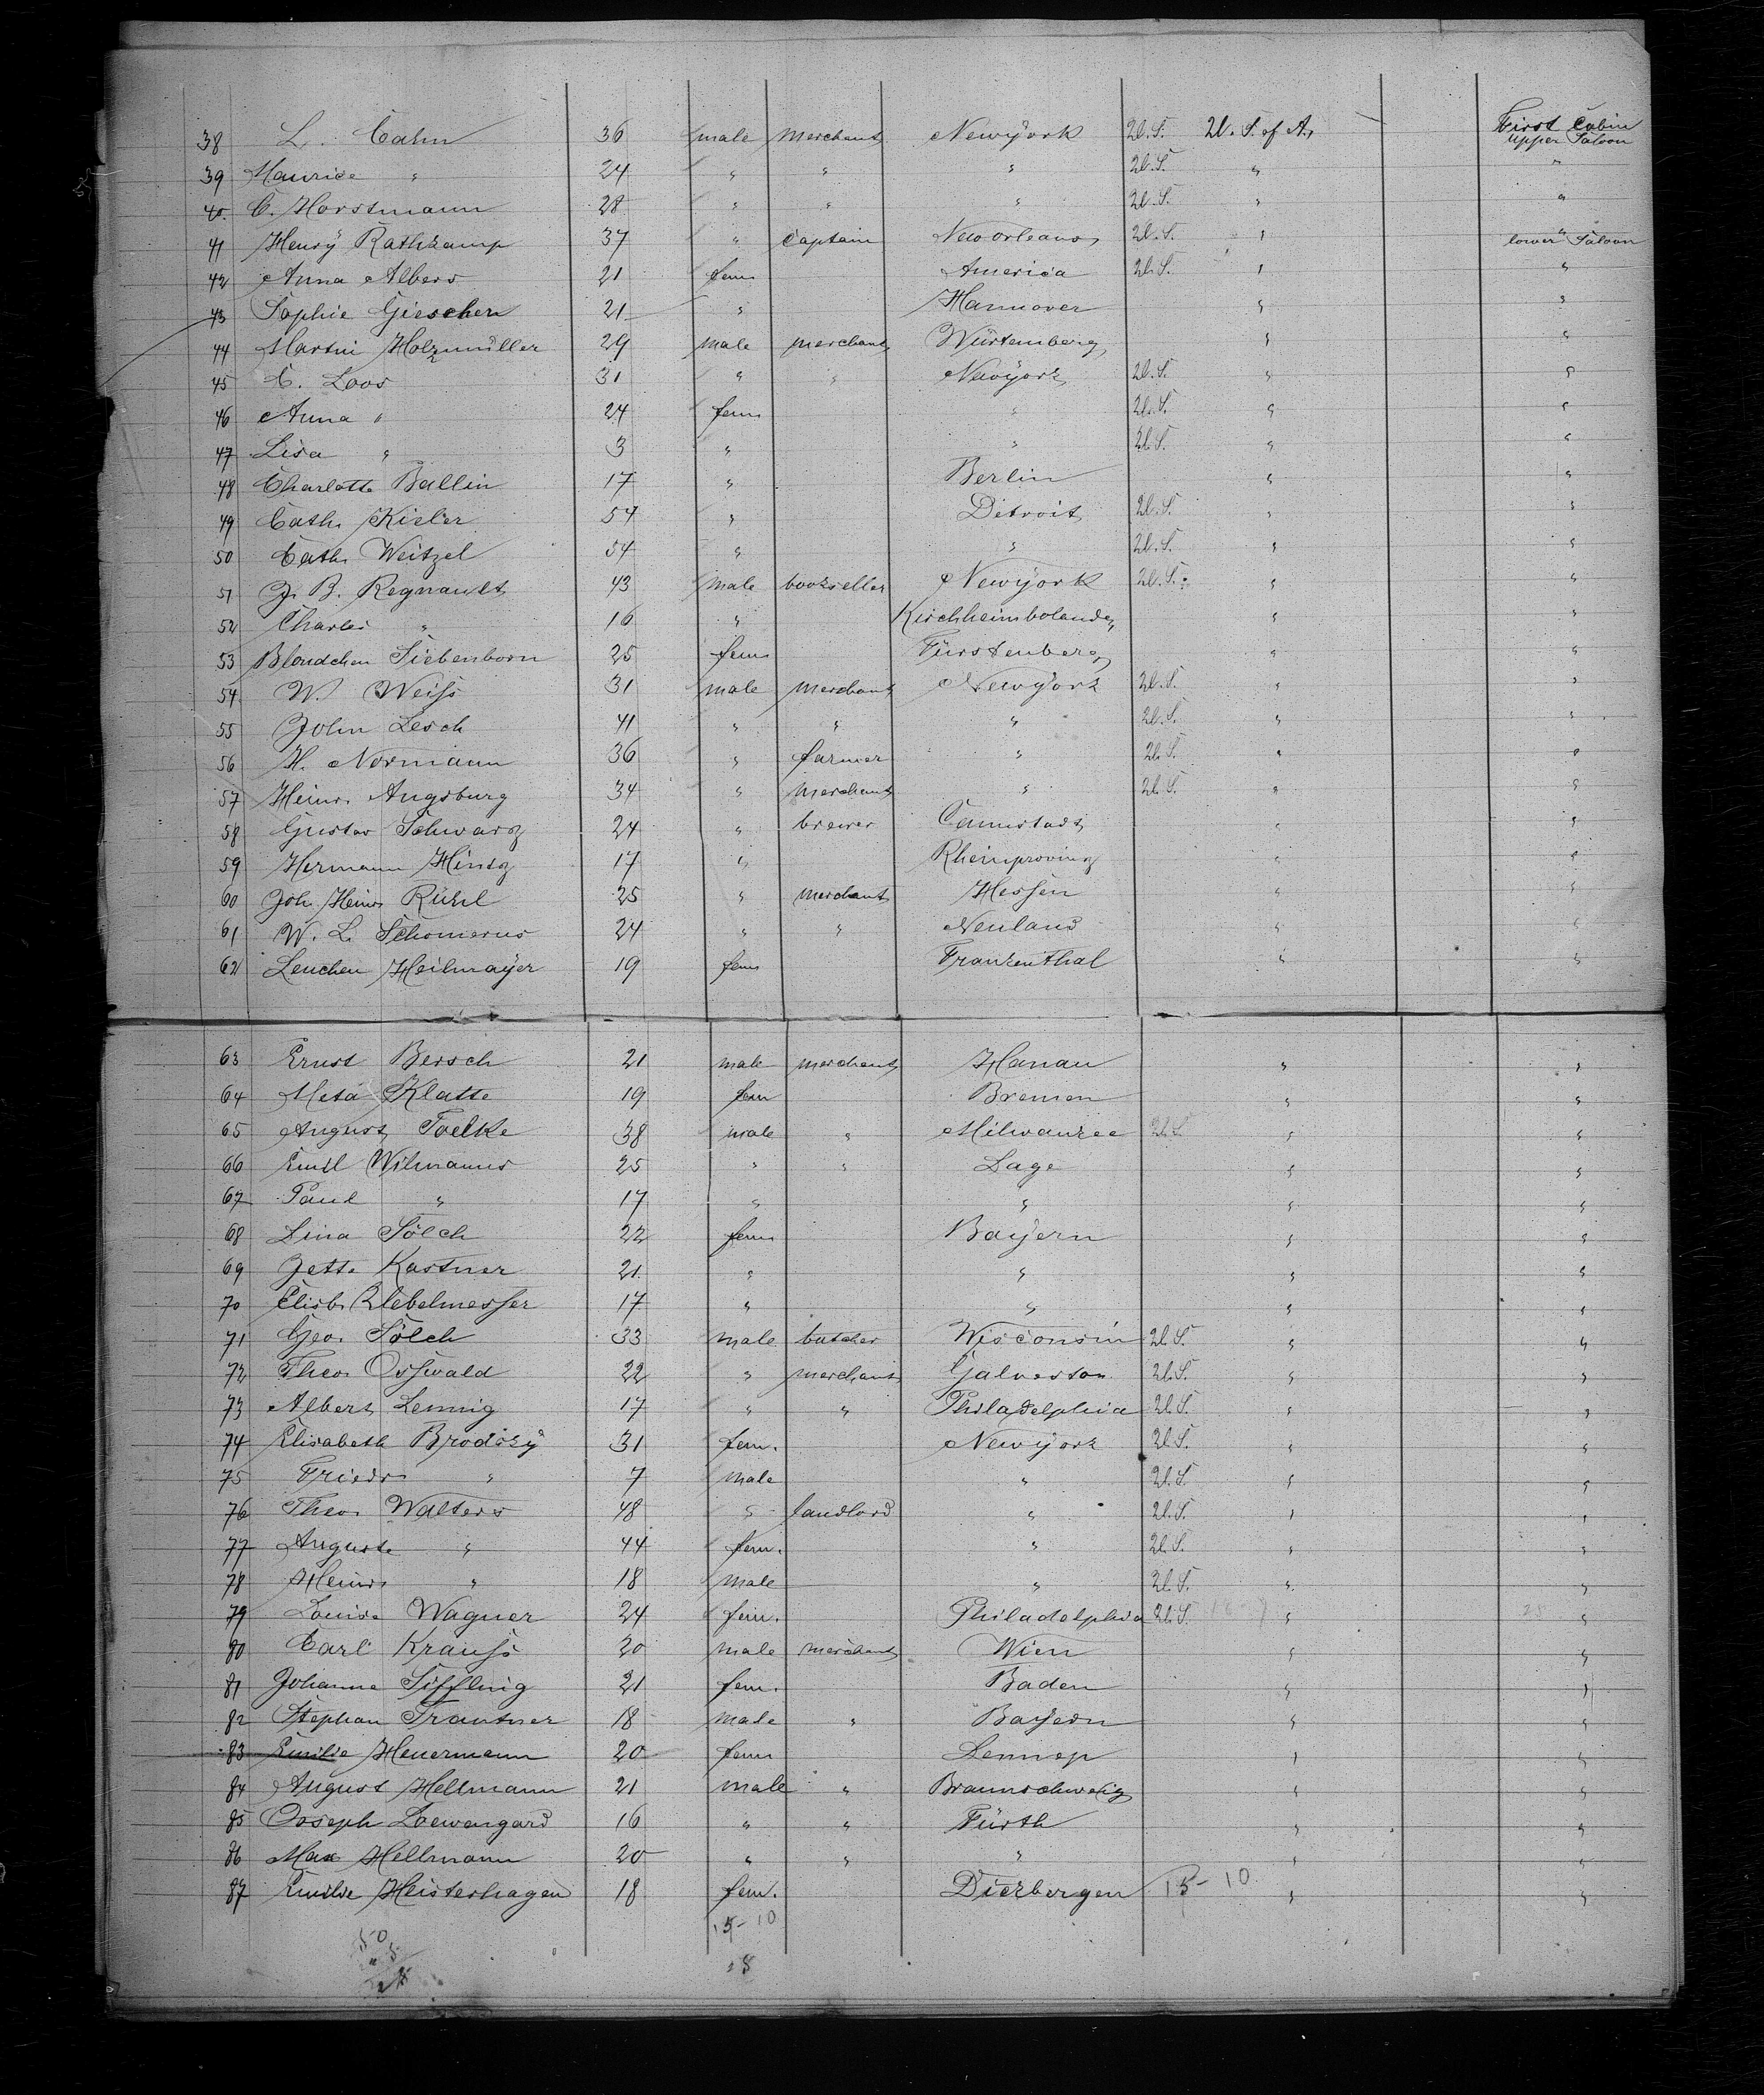 First Cabin
38 L. Cahn 36 male Merchant Newyork U.S. U.S. of A. upper Saloon
39 Maurice " 24 " " " U.S. " "
40. C. Horstmann 28 " " " U.S. " "
41 Henry Rathkamp 37 " Captain Neworleans U.S. " lower Saloon
42 Anna Albers 21 fem America U.S. " "
43 Sophie Gieschen 21 " Hannover " "
44 Martin Holzmüller 29 male merchant Würtemberg " "
45 C. Loos 31 " " Newyork U.S. " "
46 Anna " 24 fem " U.S. " "
47 Lisa " 3 " " U.S. " "
48 Charlotte Ballin 17 " Berlin " "
49 Cath. Kieler 54 " Detroit U.S. " "
50 Cath. Weitzel 54 " " U.S. " "
51 J. B. Regnault 43 male bookseller Newyork U.S. " "
52 Charles " 16 " Kirchheimbolanden " "
53 Blondchen Siebenborn 25 fem Fürstenberg " "
54. W. Weiss 31 male merchant Newyork U.S. " "
55 John Lesch 41 " " " U.S. " "
56 H. Normann 36 " farmer " U.S. " "
57 Heinr. Augsburg 34 " Merchant " U.S. " "
58 Gustav Schwarz 24 " brewer Cannstadt " "
59 Hermann Hintz 17 " Rheinprovinz " "
60 Joh. Heinr. Rükl 25 " Merchant Hessen " "
61 W. L. Schomerus 24 " " Neuland " "
62 Lenchen Heilmayer 19 fem Frankenthal " "
63 Ernst Bersch 21 male merchant Hanau " "
64 Meta Klatte 19 fem Bremen " "
65 August Toelke 38 male " Milwaukee U.S. " "
66 Emil Wilmanns 25 " " Lage " "
67 Paul " 17 " " " "
68 Lina Sölch 22 fem Bayern " "
69 Jette Kastner 21 " " " "
70 Elisb. Klebelmesser 17 " " " "
71 Geo. Sölch 33 male butcher Wisconsin U.S. " "
72 Theo. Osswald 22 " merchant Galveston U.S. " "
73 Albert Lennig 17 " " Philadelphia U.S. " "
74 Elisabeth Brodsky 31 fem. Newyork U.S. " "
75 Friedr. " 7 male " U.S. " "
76 Theo. Walters 48 " landlord " U.S. " "
77 Auguste " 44 fem. " U.S. " "
78 Heinr. " 18 male " U.S. " "
79 Louise Wagner 24 fem. Philadelphia U.S. " "
80 Carl Krauss 20 male merchant Wien " "
81 Johanna Siffling 21 fem. Baden " "
82 Stephan Trautner 18 male " Bayern " "
83 Emilie Heuermann 20 fem Lennep " "
84 August Hellmann 21 male " Braunschweig " "
85 Joseph Loewengard 16 " " Fürth " "
86 Max Hellmann 20 " " " " "
87 Emilie Heisterhagen 18 fem. Dierbergen 15-10 " "
15-10